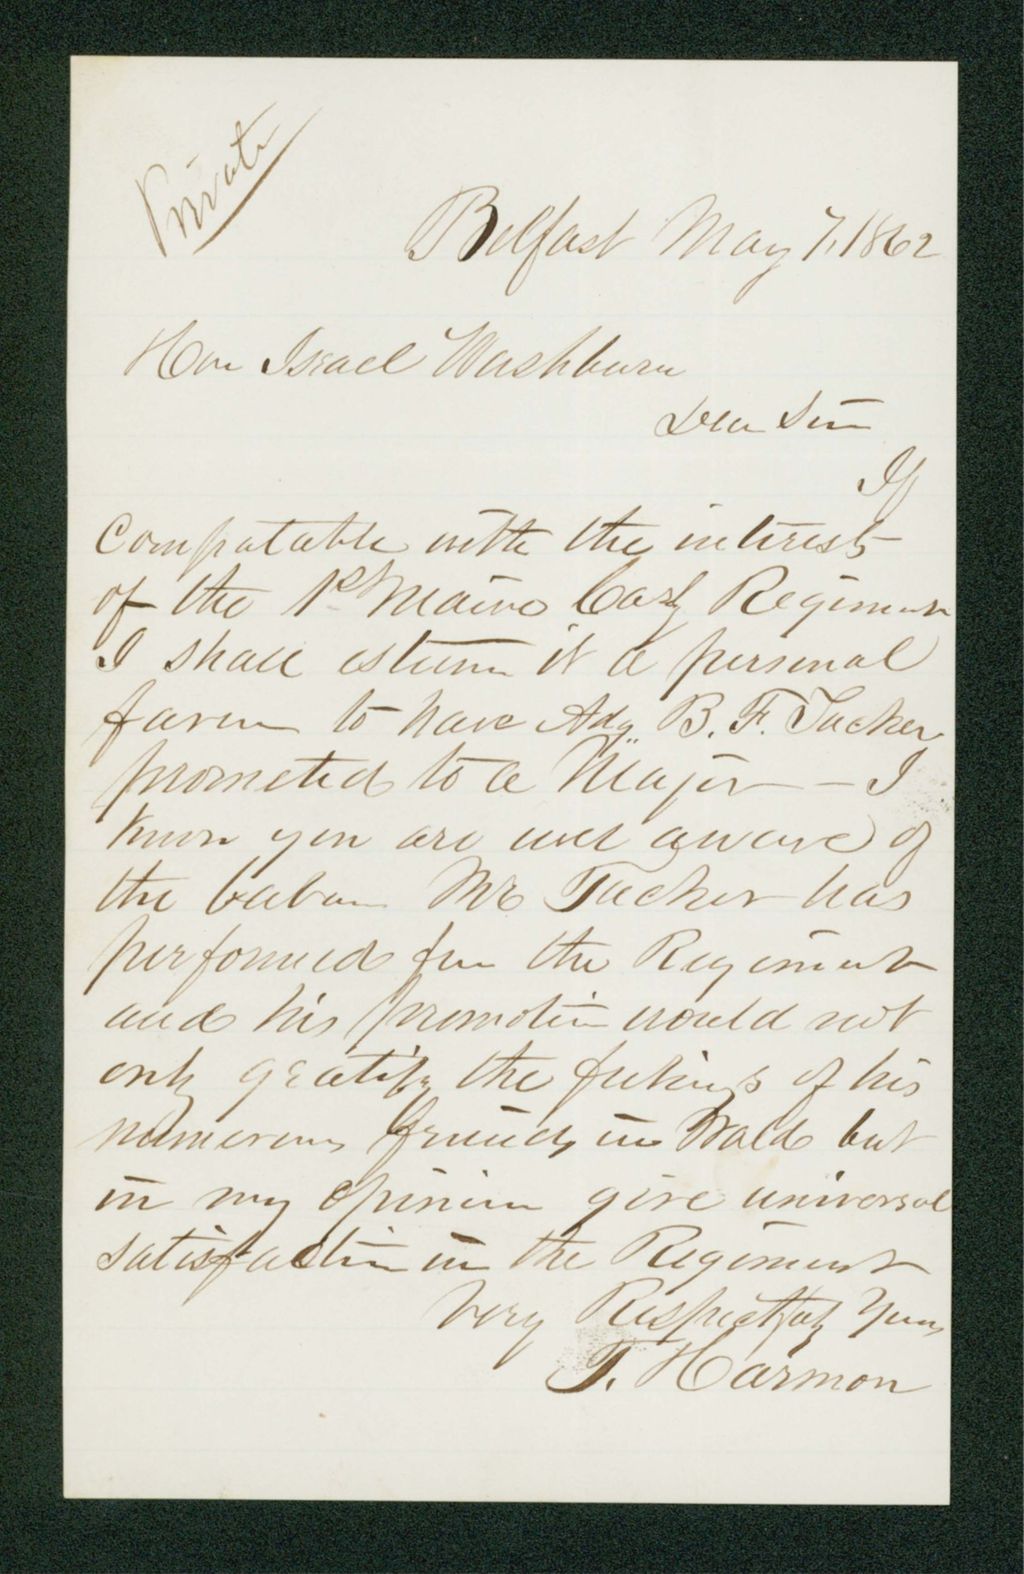 Private
Belfast May 7, 1862
Hon Israel Washburn
Dear Sir
If
compatable with the interest
of the 1st Maine Cavly Regiment
I shall esteem it a personal
favor to have Adj. B. F. Tucker
promoted to a Major — I
know you are well aware of
the labor Mr Tucker has
performed for the Regiment
and his promotion would not
only gratify the feelings of his
numerous friends in Waldo but
in my opinion give universal
satisfaction in the Regiment
Very Respectfuly Yours
T. Harmon